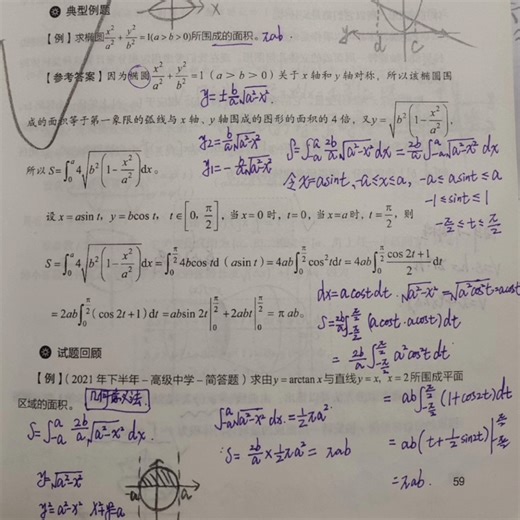 典型例题
【例】求椭圆x²/a²+y²/b²=1(a>b>0)所围成的面积。πab.
【参考答案】因为椭圆x²/a²+y²/b²=1(a>b>0)关于x轴和y轴对称，所以该椭圆围
y=±b/a√a²-x².
成的面积等于第一象限的弧线与x轴、y轴围成的图形的面积的4倍，又y=√b²(1-x²/a²),
y₂=b/a√a²-x²
y₁=-b/a√a²-x²
S=∫₋ₐᵃ 2b/a√a²-x² dx=2b/a∫₋ₐᵃ√a²-x² dx
所以S=∫₀ᵃ4√b²(1-x²/a²)dx。
令x=asint, -a≤x≤a, -a≤asint≤a
-1≤sint≤1
-π/2≤t≤π/2
设x=asin t，y=bcos t，t∈[0, π/2]，当x=0时，t=0，当x=a时，t=π/2，则
S=∫₀ᵃ4√b²(1-x²/a²)dx=∫₀^(π/2)4bcos td(asin t)=4ab∫₀^(π/2)cos²tdt=4ab∫₀^(π/2)(cos 2t+1)/2 dt
dx=acostdt. √a²-x²=√a²cos²t=acost
=2ab∫₀^(π/2)(cos 2t+1)dt=absin 2t|₀^(π/2)+2abt|₀^(π/2)=πab。
S=2b/a∫₋π/2^(π/2)(acost·acost)dt
=2b/a∫₋π/2^(π/2)a²cos²t dt
试题回顾
【例】(2021年下半年-高级中学-简答题)求由y=arctan x与直线y=x，x=2所围成平面
区域的面积。几何意义法
=ab∫₋π/2^(π/2)(1+cos2t)dt
S=∫₋ₐᵃ 2b/a√a²-x² dx.
∫₋ₐᵃ√a²-x² dx=1/2πa².
S=2b/a×1/2πa²=πab
=ab(t+1/2sin2t)|₋π/2^(π/2)
=πab.
y=√a²-x²
y²=a²-x²
-a
a
59
d
c